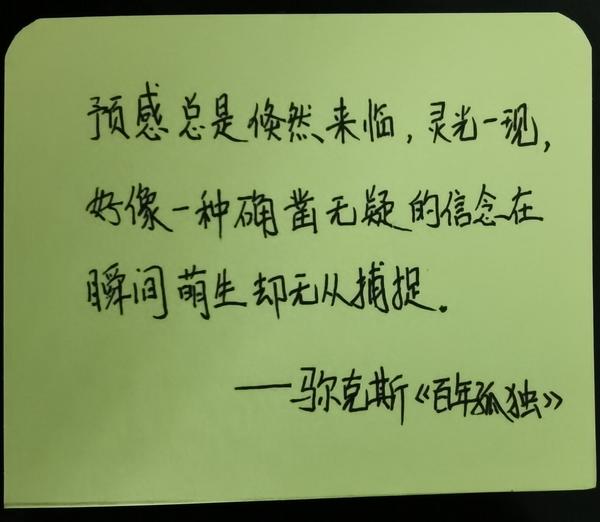 预感总是倏然来临，灵光一现，
好像一种确凿无疑的信念在
瞬间萌生却无从捕捉。
——马尔克斯《百年孤独》